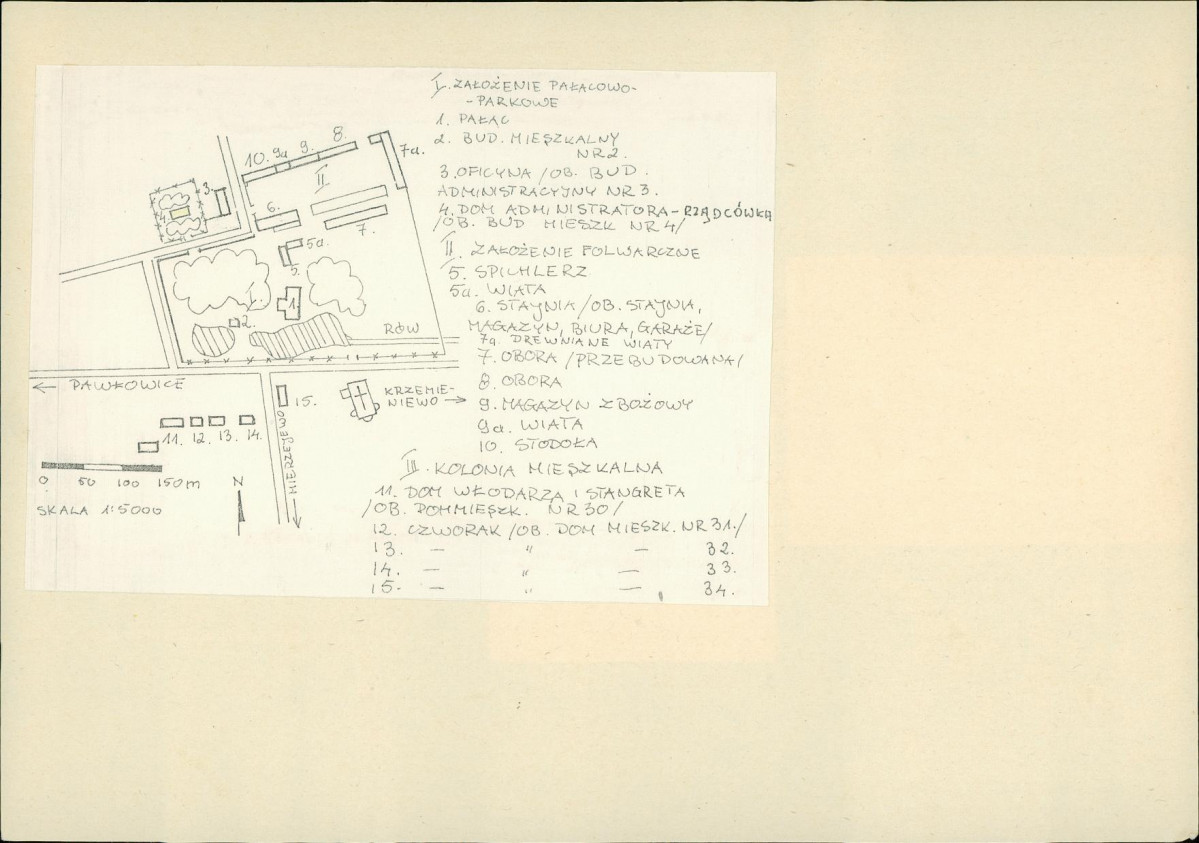 I. ZAŁOŻENIE PAŁACOWO-
-PARKOWE
1. PAŁAC
2. BUD. MIESZKALNY
NR 2.
3. OFICYNA /OB. BUD.
ADMINISTRACYJNY NR 3.
4. DOM ADMINISTRATORA - RZĄDCÓWKA
/OB. BUD MIESZK NR 4/
II. ZAŁOŻENIE FOLWARCZNE
5. SPICHLERZ
5a. WIATA
6. STAJNIA /OB. STAJNIA,
MAGAZYN, BIURA, GARAŻE/
7a. DREWNIANE WIATY
7. OBORA /PRZEBUDOWANA/
8. OBORA
9. MAGAZYN ZBOŻOWY
9a. WIATA
10. STODOŁA
III. KOLONIA MIESZKALNA
11. DOM WŁODARZA I STANGRETA
/OB. DOM MIESZK. NR 30/
12. CZWORAK /OB. DOM MIESZK. NR 31./
13. — " — 32.
14. — " — 33.
15. — " — 34.
10. 9a 9. 8.
7a.
II
3.
4.
6.
7.
5a.
5.
1.
2.
RÓW
← PAWŁOWICE
KRZEMIE-
NIEWO →
15.
11. 12. 13. 14.
MIERZEJEWO
0 50 100 150 m
N
SKALA 1:5000